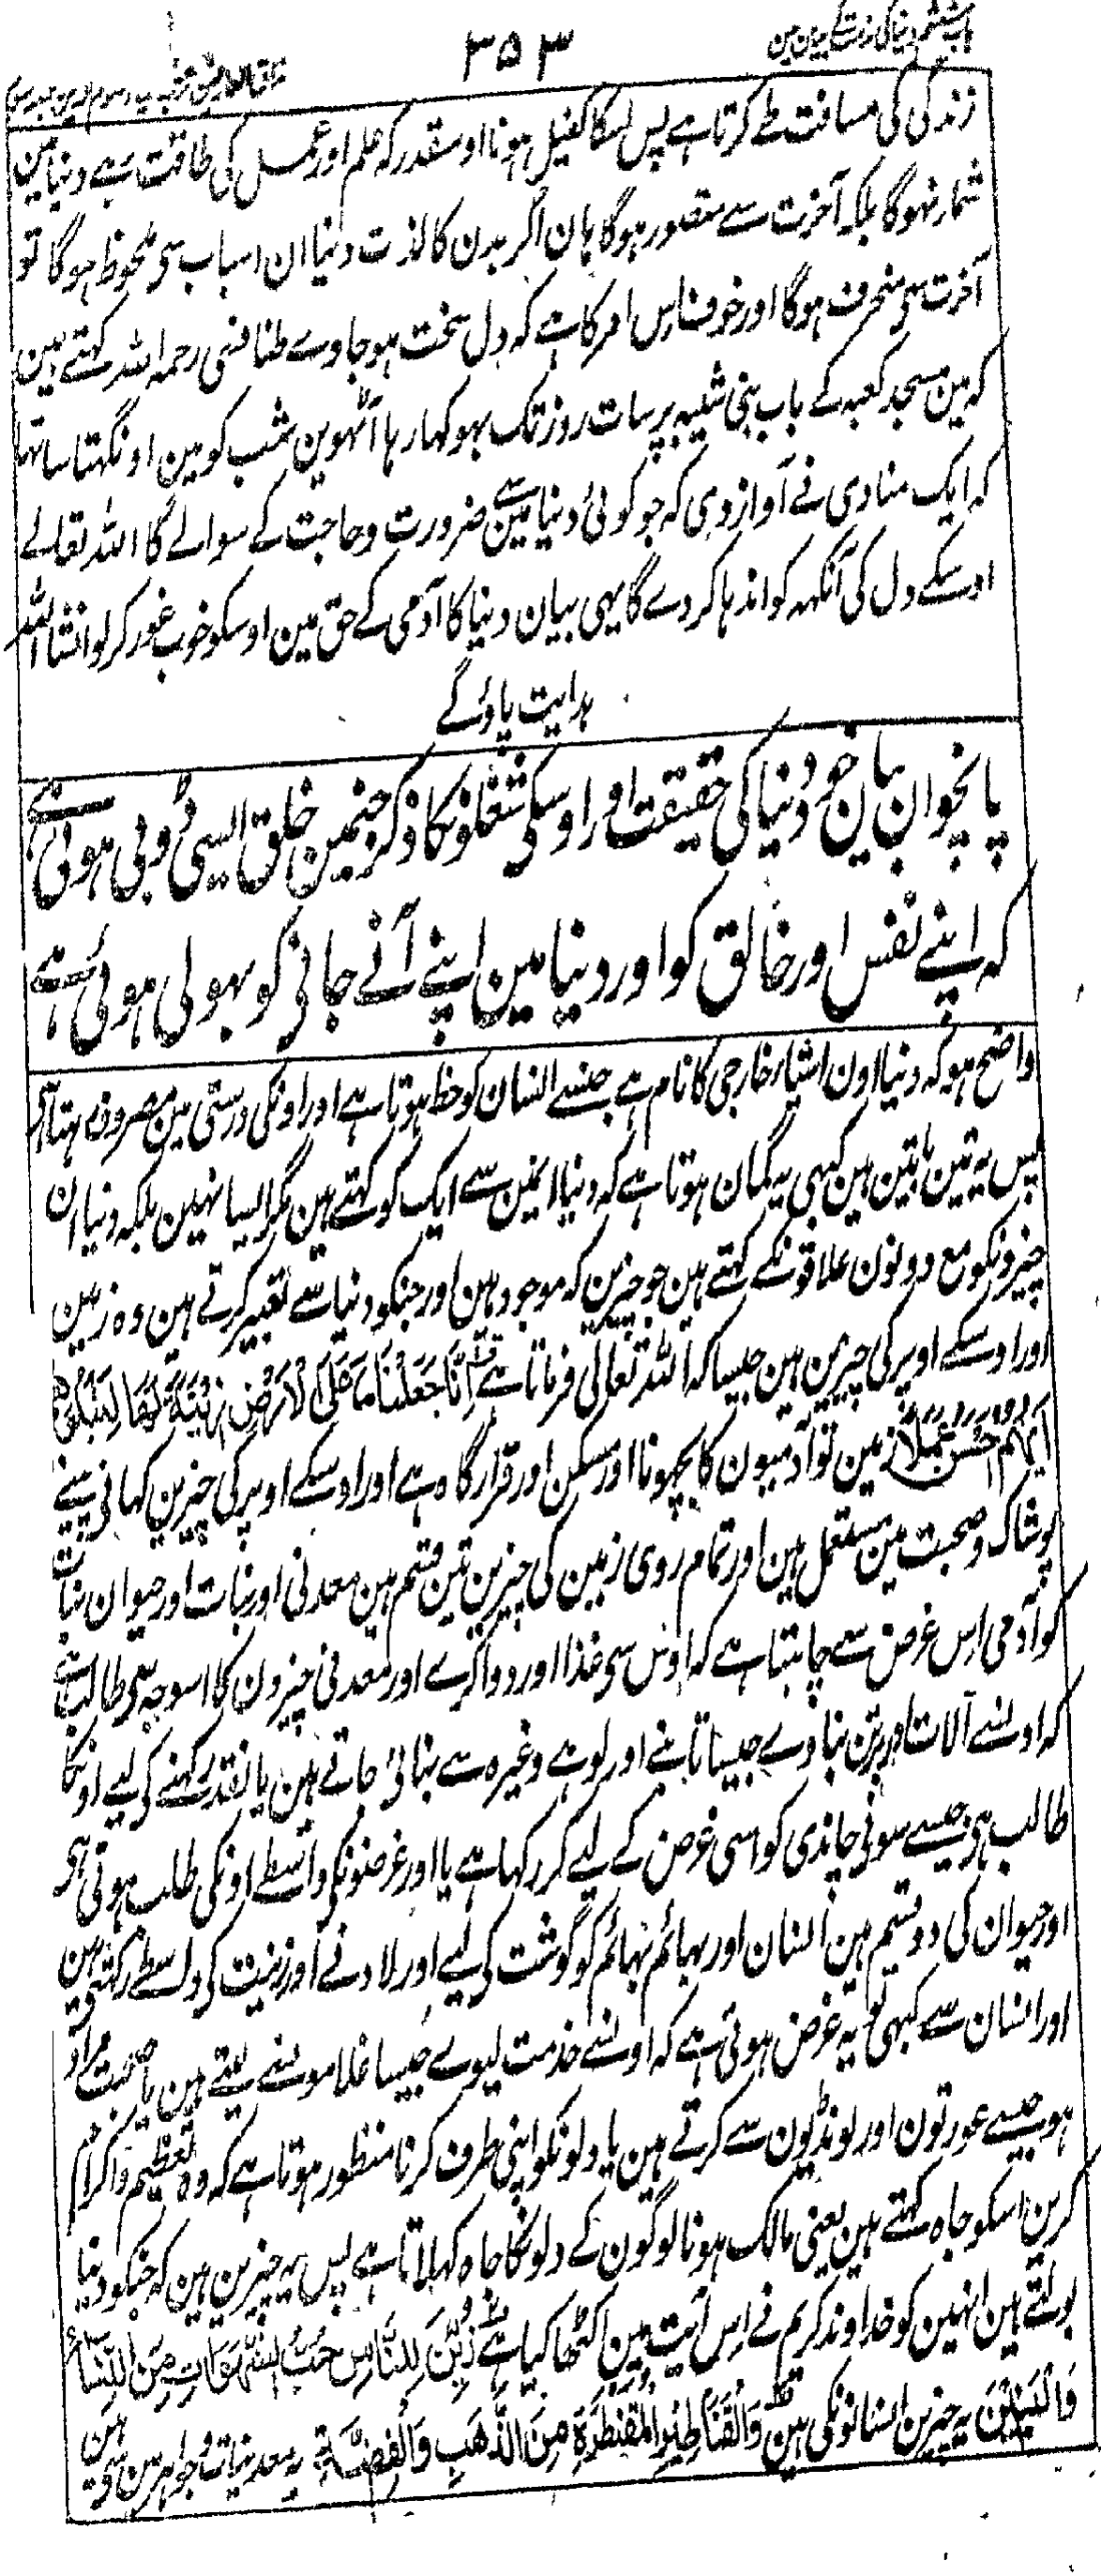 باب ششم دنیا کی مذمت کے بیان مین
۳۵۳
زندگی کی مسافت طے کرتا ہے پس اسکا کفیل ہونا اوسقدر کہ علم اور عمل کی طاقت رہے دنیا مین
شمار نہوگا بلکہ آخرت سے متصور ہوگا ہان اگر بدن کا لذت دنیا ان اسباب سی ملحوظ ہوگا تو
آخرت سی منحرف ہوگا اور خوف اس امر کا ہے کہ دل سخت ہو جاوے طنافسی رحمہ اللہ کہتے ہین
کہ مین مسجد کعبہ کے باب بنی شیبہ پر سات روز تک بہوکہا رہا آٹہوین شب کو مین اونگہتا سا تہا
کہ ایک منادی نے آواز دی کہ جو کوئی دنیا مین سے ضرورت و حاجت کے سوا لے گا اللہ تعالے
اوسکے دل کی آنکہہ کو اندہا کر دے گا یہی بیان دنیا کا آدمی کے حق مین اوسکو خوب غور کر لو انشا اللہ
ہدایت پاؤگے
پانچوان بیان خود دنیا کی حقیقت اور اوسکی شغلونکا ذکر جنمین خلق ایسی ڈوبی ہوئی ہے
کہ اپنے نفس اور خالق کو اور دنیا مین اپنے آنے جانی کو بہولی ہوئی ہے
واضح ہو کہ دنیا اون اشیار خارجی کا نام ہے جنسے انسان کو حظ ہوتا ہے اور اونکی درستی مین مصروف رہتا ہے
پس یہ تین باتین ہین کبہی یہ گمان ہوتا ہے کہ دنیا انمین سے ایک کو کہتے ہین مگر ایسا نہین بلکہ دنیا ان
چیزونکو مع دونون علاقونکے کہتے ہین جو چیزین کہ موجود ہین اور جنکو دنیا سے تعبیر کرتے ہین وہ زمین
اور اوسکے اوپر کی چیزین ہین جیسا کہ اللہ تعالی فرماتا ہے اِنَّا جَعَلْنَا مَا عَلَی الْاَرْضِ زِیْنَةً لَّهَا لِنَبْلُوَهُمْ
اَیُّهُمْ اَحْسَنُ عَمَلًا زمین تو آدمیون کا بچہونا اور مسکن اور قرارگاہ ہے اور اوسکے اوپر کی چیزین کہانی پینے
پوشاک و صحبت مین مستعمل ہین اور تمام روی زمین کی چیزین تین قسم ہین معدنی اور نبات اور حیوان نبات
کو آدمی اِس غرض سے چاہتا ہے کہ اوس سی غذا اور دوا کرے اور معدنی چیزون کا اسوجہ سی طالب ہے
کہ اونسے آلات اور برتن بناوے جیسا تانبے اور لوہے وغیرہ سے بنائی جاتے ہین یا نقد رکہنے کی لیے اونکا
طالب ہو جیسے سونی چاندی کو اسی غرض کے لیے کر رکہا ہے یا اور غرضونکی واسطے اونکی طلب ہوتی ہی
اور حیوان کی دو قسم ہین انسان اور بہائم بہائم کو گوشت کی لیے اور لادنے اور زینت کی واسطے رکہتی ہین
اور انسان سے کبہی تو یہ غرض ہوتی ہے کہ اونسے خدمت لیوے جیسا غلامونسے لیتے ہین یا صحبت مراد
ہو جیسے عورتون اور لونڈیون سے کرتے ہین یا دلونکو اپنی طرف کرنا منظور ہوتا ہے کہ وہ تعظیم و اکرام
کرین اسکو جاہ کہتے ہین یعنی مالک ہونا لوگون کے دلونکا جاہ کہلاتا ہے پس یہ چیزین ہین کہ جنکو دنیا
بولتے ہین انہین کو خداوند کریم نے اِس آیت مین اکٹھا کیا ہے زُیِّنَ لِلنَّاسِ حُبُّ الشَّهَوَاتِ مِنَ النِّسَآءِ
وَالْبَنِیْنَ یہ چیزین انسانونکی ہین وَالْقَنَاطِیْرِ الْمُقَنْطَرَةِ مِنَ الذَّهَبِ وَالْفِضَّةِ یہ معدنیات و جواہر مین سی ہین